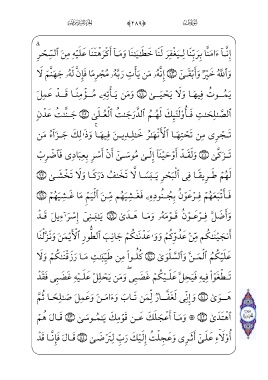 إِنَّآ ءَامَنَّا بِرَبِّنَا لِيَغْفِرَ لَنَا خَطَٰيَٰنَا وَمَآ أَكْرَهْتَنَا عَلَيْهِ مِنَ ٱلسِّحْرِ
وَٱللَّهُ خَيْرٌ وَأَبْقَىٰٓ ۝ إِنَّهُۥ مَن يَأْتِ رَبَّهُۥ مُجْرِمًا فَإِنَّ لَهُۥ جَهَنَّمَ لَا
يَمُوتُ فِيهَا وَلَا يَحْيَىٰ ۝ وَمَن يَأْتِهِۦ مُؤْمِنًا قَدْ عَمِلَ
ٱلصَّٰلِحَٰتِ فَأُو۟لَٰٓئِكَ لَهُمُ ٱلدَّرَجَٰتُ ٱلْعُلَىٰ ۝ جَنَّٰتُ عَدْنٍ
تَجْرِى مِن تَحْتِهَا ٱلْأَنْهَٰرُ خَٰلِدِينَ فِيهَا وَذَٰلِكَ جَزَآءُ مَن
تَزَكَّىٰ ۝ وَلَقَدْ أَوْحَيْنَآ إِلَىٰ مُوسَىٰٓ أَنْ أَسْرِ بِعِبَادِى فَٱضْرِبْ
لَهُمْ طَرِيقًا فِى ٱلْبَحْرِ يَبَسًا لَّا تَخَٰفُ دَرَكًا وَلَا تَخْشَىٰ ۝
فَأَتْبَعَهُمْ فِرْعَوْنُ بِجُنُودِهِۦ فَغَشِيَهُم مِّنَ ٱلْيَمِّ مَا غَشِيَهُمْ ۝
وَأَضَلَّ فِرْعَوْنُ قَوْمَهُۥ وَمَا هَدَىٰ ۝ يَٰبَنِىٓ إِسْرَٰٓءِيلَ قَدْ
أَنجَيْنَٰكُم مِّنْ عَدُوِّكُمْ وَوَٰعَدْنَٰكُمْ جَانِبَ ٱلطُّورِ ٱلْأَيْمَنَ وَنَزَّلْنَا
عَلَيْكُمُ ٱلْمَنَّ وَٱلسَّلْوَىٰ ۝ كُلُوا۟ مِن طَيِّبَٰتِ مَا رَزَقْنَٰكُمْ وَلَا
تَطْغَوْا۟ فِيهِ فَيَحِلَّ عَلَيْكُمْ غَضَبِى وَمَن يَحْلِلْ عَلَيْهِ غَضَبِى فَقَدْ
هَوَىٰ ۝ وَإِنِّى لَغَفَّارٌ لِّمَن تَابَ وَءَامَنَ وَعَمِلَ صَٰلِحًا ثُمَّ
ٱهْتَدَىٰ ۝ وَمَآ أَعْجَلَكَ عَن قَوْمِكَ يَٰمُوسَىٰ ۝ قَالَ هُمْ
أُو۟لَآءِ عَلَىٰٓ أَثَرِى وَعَجِلْتُ إِلَيْكَ رَبِّ لِتَرْضَىٰ ۝ قَالَ فَإِنَّا قَدْ